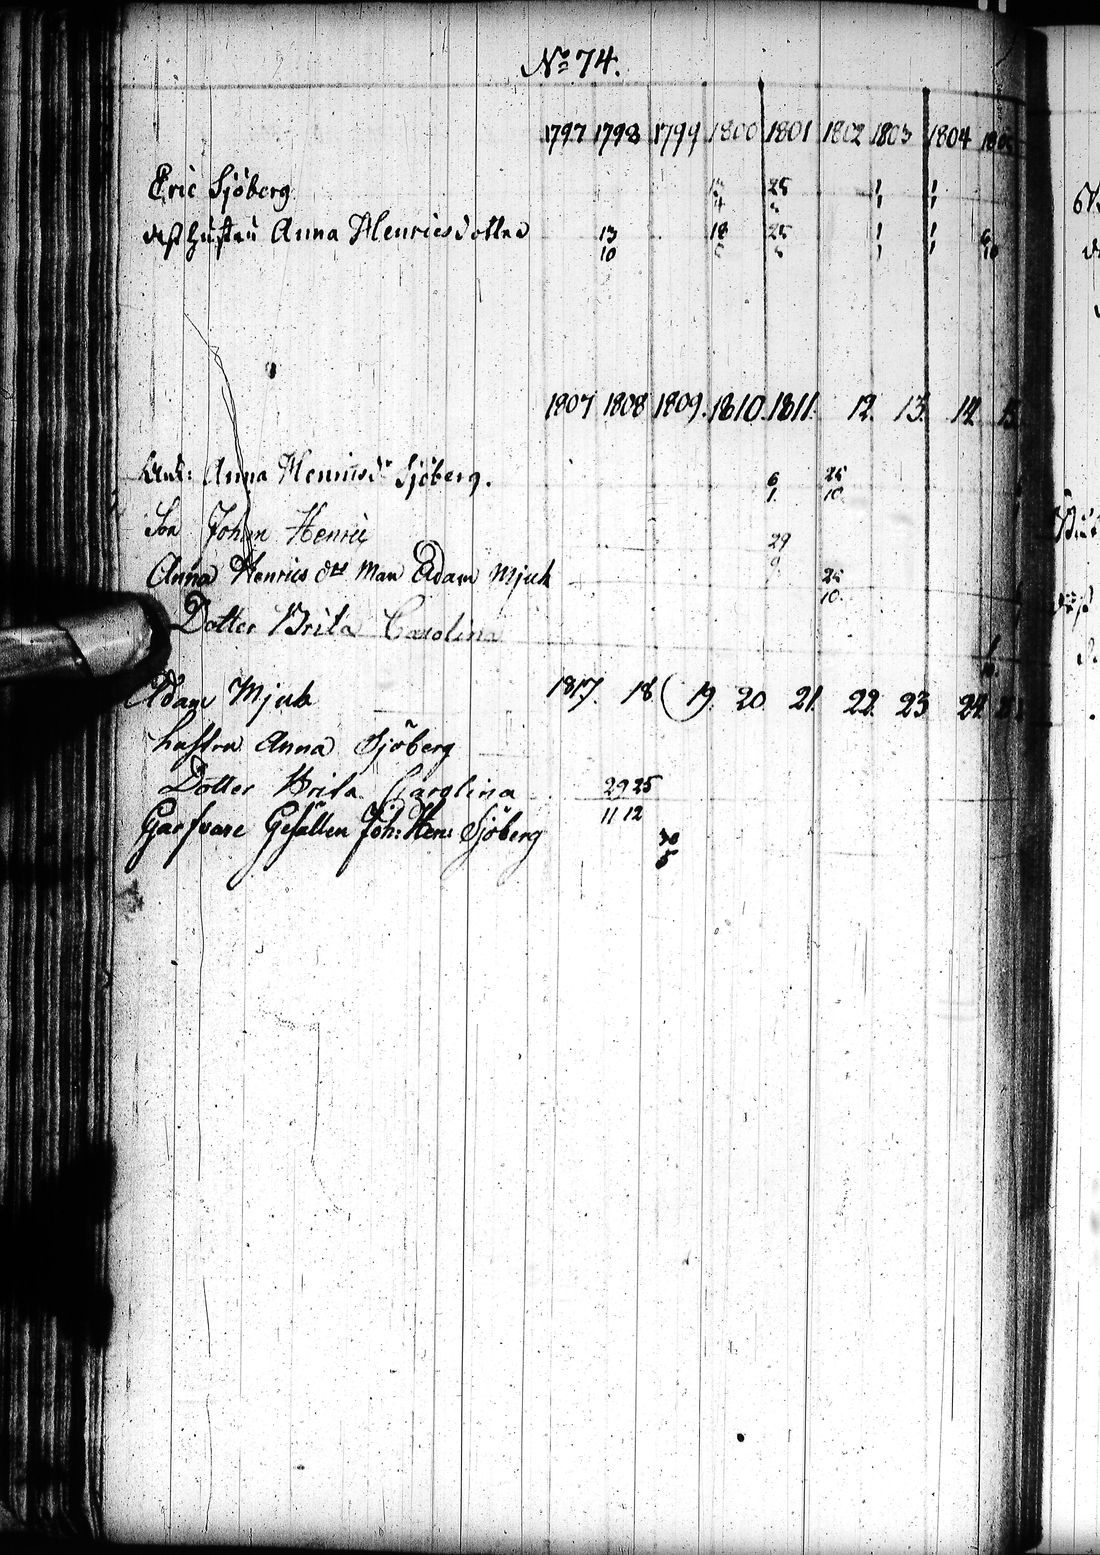 No 74.
1797 1798 1799 1800 1801 1802 1803 1804
Eric Sjöberg 25 1 1
4 1 1
dess hustru Anna Henricsdotter 13 18 25 1 1 6
10 5 1 1 10
1807 1808 1809. 1810. 1811. 12. 13. 14 15.
Enk: Anna Henricsdr Sjöberg. 6 25
1. 10.
Son Johan Henric 29
9
Anna Henrics dtr Man Adam Mjuk 25
10.
Dotter Brita Carolina 1
Adam Mjuk 1817. 18 19. 20. 21. 22. 23 24
hustru Anna Sjöberg
Dotter Brita Carolina 29 25
11 12
Garfvare Gesällen Joh: Hen: Sjöberg 30
5